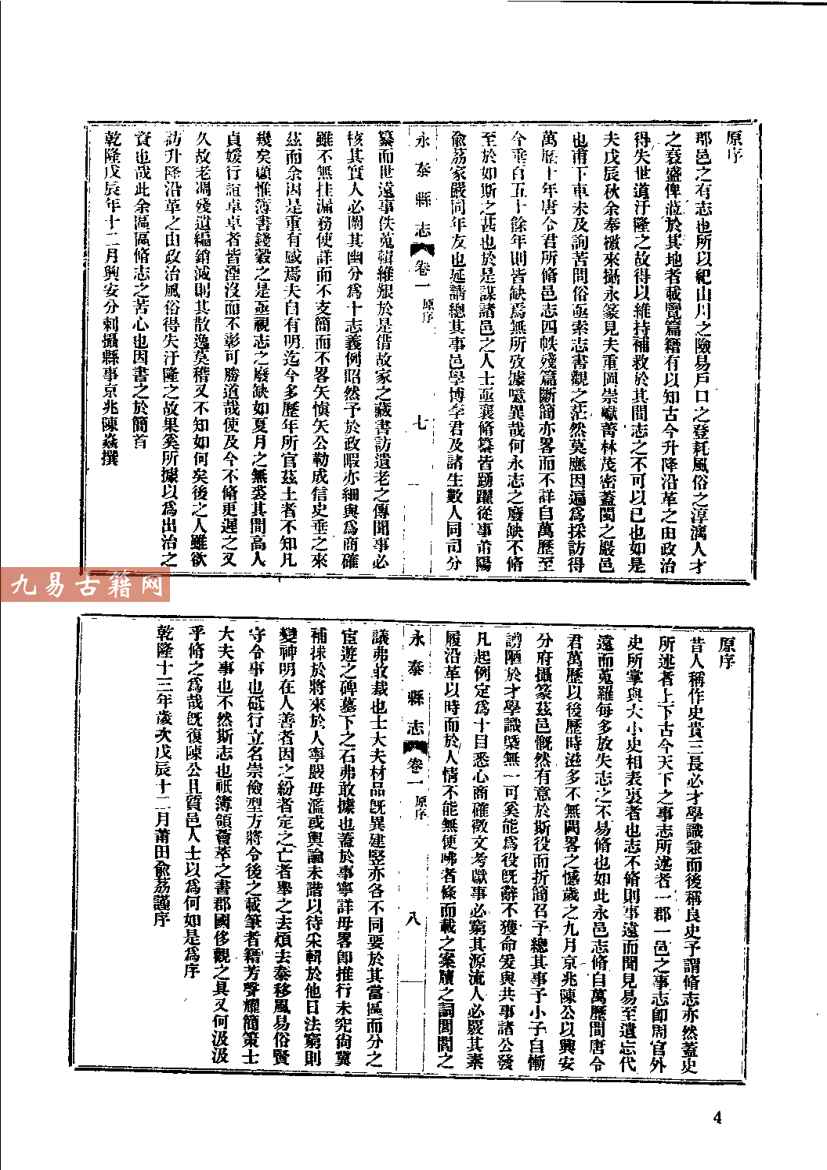 原序
郡邑之有志也所以紀山川之險易戶口之登耗風俗之淳漓人才
之衰盛俾蒞於其地者載覽篇籍有以知古今升降沿革之由政治
得失世道汙隆之故得以維持補救於其間志之不可以已也如是
夫戊辰秋余奉檄來攝永篆見夫重岡崇巘菁林茂密蓋閩之嚴邑
也甫下車未及詢苦問俗亟索志書觀之茫然莫應因遍為採訪得
萬歷十年唐令君所脩邑志四帙殘篇斷簡亦畧而不詳自萬歷至
今垂百五十餘年則皆缺焉無所攷據噫異哉何永志之廢缺不脩
至於如斯之甚也於是謀諸邑之人士亟襄脩纂皆踴躍從事莆陽
俞荔家嚴同年友也延請總其事邑學博李君及諸生數人同司分
永泰縣志 卷一 原序 七
纂而世遠事佚蒐輯維艱於是借故家之藏書訪遺老之傳聞事必
核其實人必闡其幽分為十志義例昭然予於政暇亦細與為商確
雖不無挂漏務使詳而不支簡而不畧矢慎矢公勒成信史垂之來
茲而余因是重有感焉夫自有明迄今多歷年所官茲土者不知凡
幾矣顧惟簿書錢穀之是亟視志之廢缺如夏月之無裘其間高人
貞媛行誼卓卓者皆湮沒而不彰可勝道哉使及今不脩更遲之又
久故老凋殘遺編銷滅則其散逸莫稽又不知如何矣後之人雖欲
訪升降沿革之由政治風俗得失汙隆之故果奚所據以為出治之
資也哉此余區區脩志之苦心也因書之於簡首
乾隆戊辰年十二月興安分刺攝縣事京兆陳焱撰
九易古籍网
原序
昔人稱作史貴三長必才學識兼而後稱良史予謂脩志亦然蓋史
所述者上下古今天下之事志所述者一郡一邑之事志即周官外
史所掌與大小史相表裏者也志不脩則事遠而聞見易至遺忘代
遠而蒐羅每多放失志之不易脩也如此永邑志脩自萬歷間唐令
君萬歷以後歷時滋多不無闕畧之憾歲之九月京兆陳公以興安
分府攝篆茲邑慨然有意於斯役而折簡召予總其事予小子自慚
譾陋於才學識槩無一可奚能為役既辭不獲命爰與共事諸公發
凡起例定為十目悉心商確徵文考獻事必窮其源流人必覈其素
履沿革以時而於人情不能無便咈者條而載之案牘之詞閭閻之
永泰縣志 卷一 原序 八
議弗敢裁也士大夫材品既異建竪亦各不同要於其當區而分之
宦遊之碑墓下之石弗敢據也蓋於事寧詳毋畧即推行未究尚冀
補捄於將來於人寧嚴毋濫或輿論未諧以待采輯於他日法窮則
變神明在人善者因之紛者定之亡者舉之去煩去泰移風易俗賢
守令事也砥行立名崇儉型方將令後之載筆者籍芳聲耀簡策士
大夫事也不然斯志也祇簿領薈萃之書郡國侈觀之具又何汲汲
乎脩之為哉既復陳公且質邑人士以為何如是為序
乾隆十三年歲次戊辰十二月莆田俞荔謹序
4